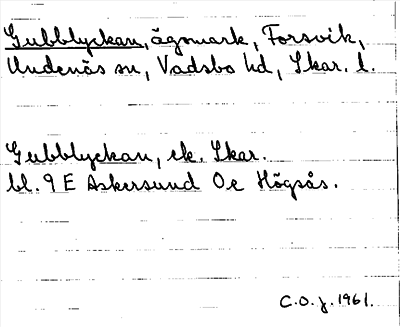 Gubblyckan, ägomark, Forsvik,
Undenäs sn, Vadsbo hd, Skar. l.
Gubblyckan, ek. Skar.
bl. 9 E Askersund Oe Högsås.
C.O.J. 1961.